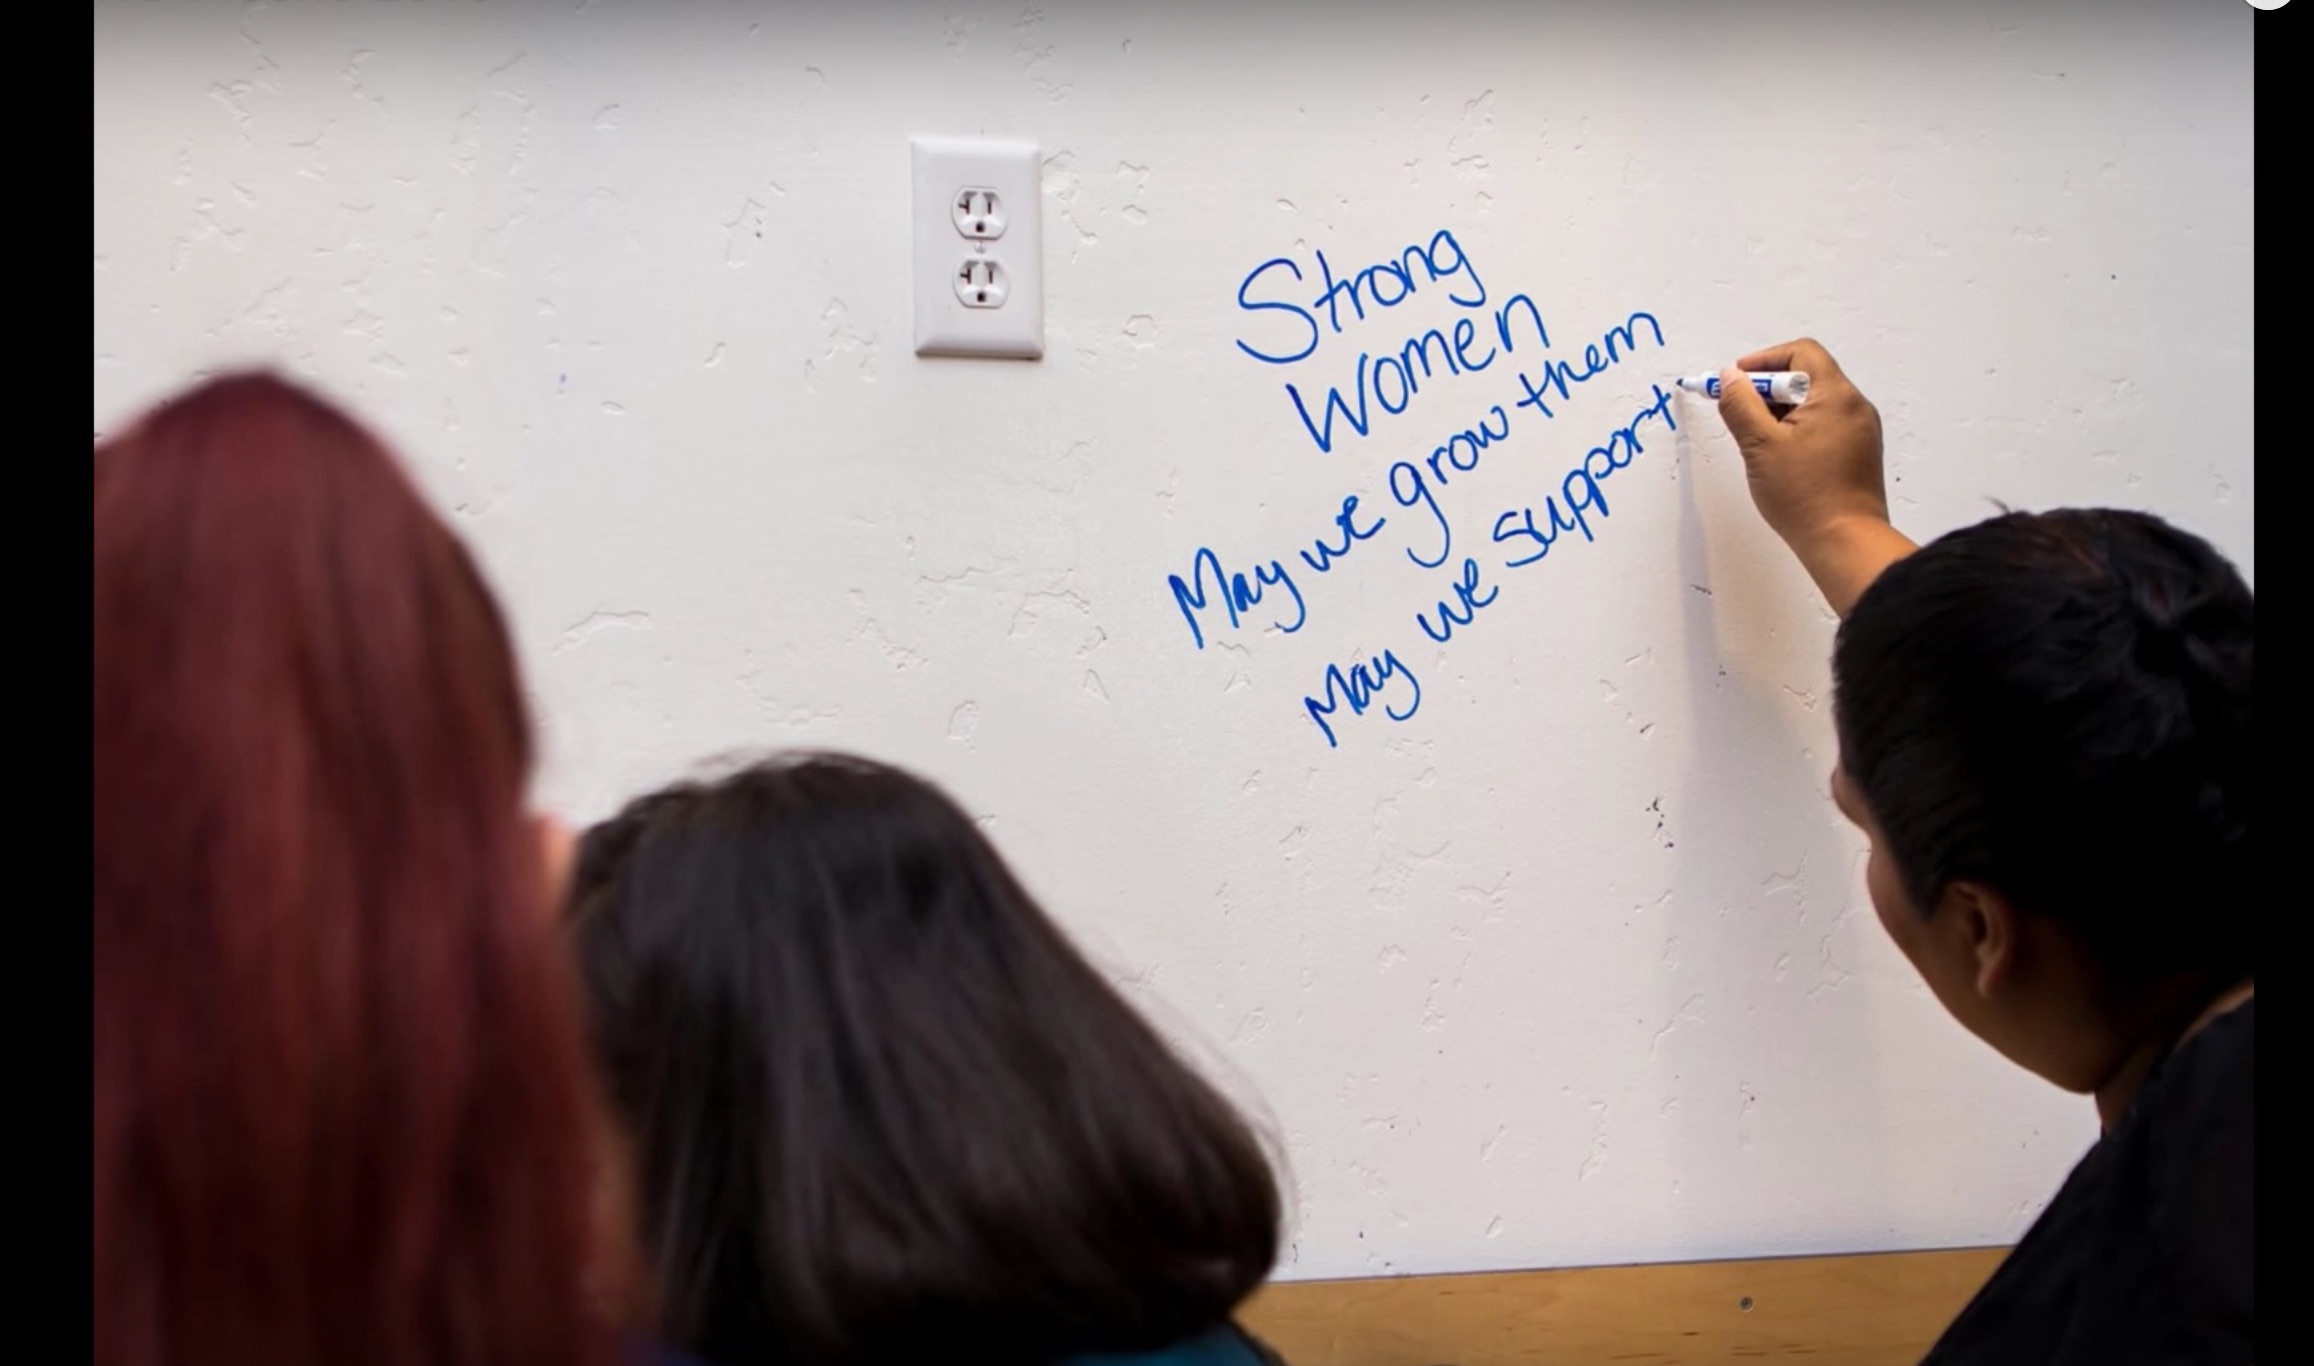 Strong
Women
May we grow them
May we support